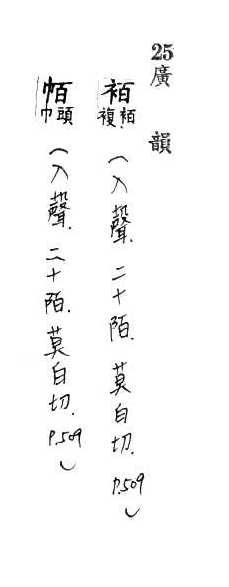 25廣韻
袹袹複(入聲.二十陌.莫白切.P.509)
帞頭巾(入聲.二十陌.莫白切.P.509)